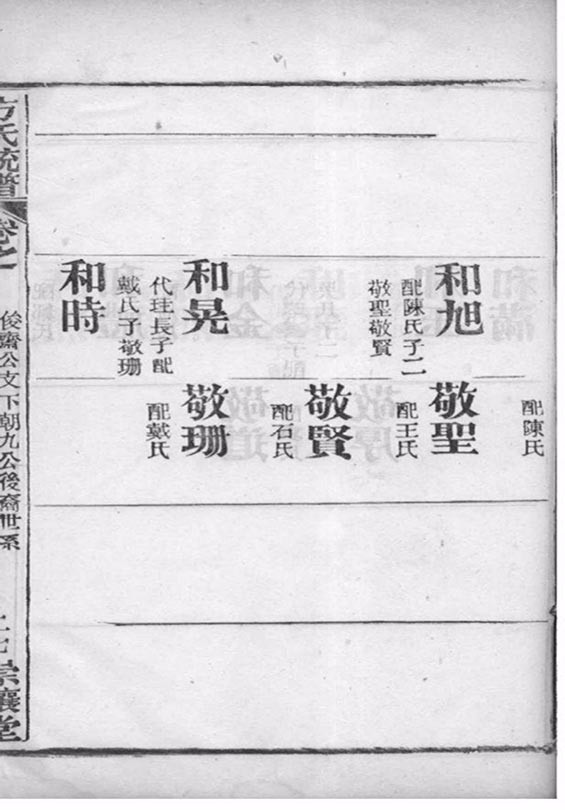 配陳氏
和旭
配陳氏子二
敬聖敬賢
敬聖
配王氏
敬賢
配石氏
和晃
代珪長子配
戴氏子敬珊
敬珊
配戴氏
和時
方氏統譜
卷之一
俊齋公支下朝九公後裔世系
崇讓堂